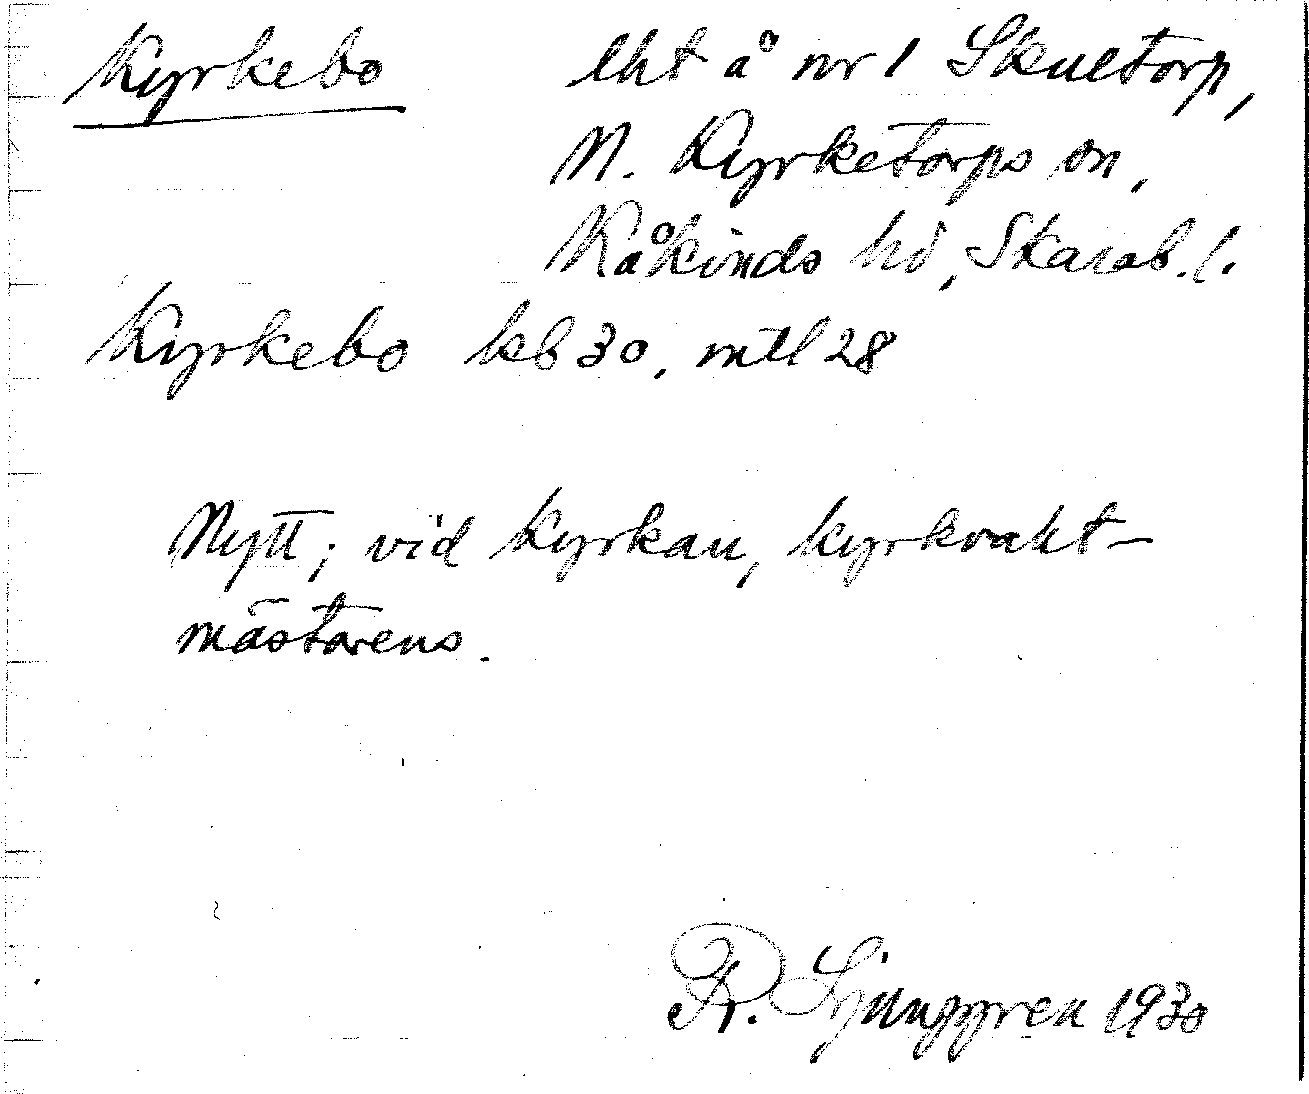 Kyrkebo lht å nr 1 Skultorp,
N. Kyrketorps sn,
Kåkinds hd, Skarab. l.
Kyrkebo kb 30, mtl 28
Nytt; vid kyrkan, kyrkvakt-
mästarens.
R. Ljunggren 1930